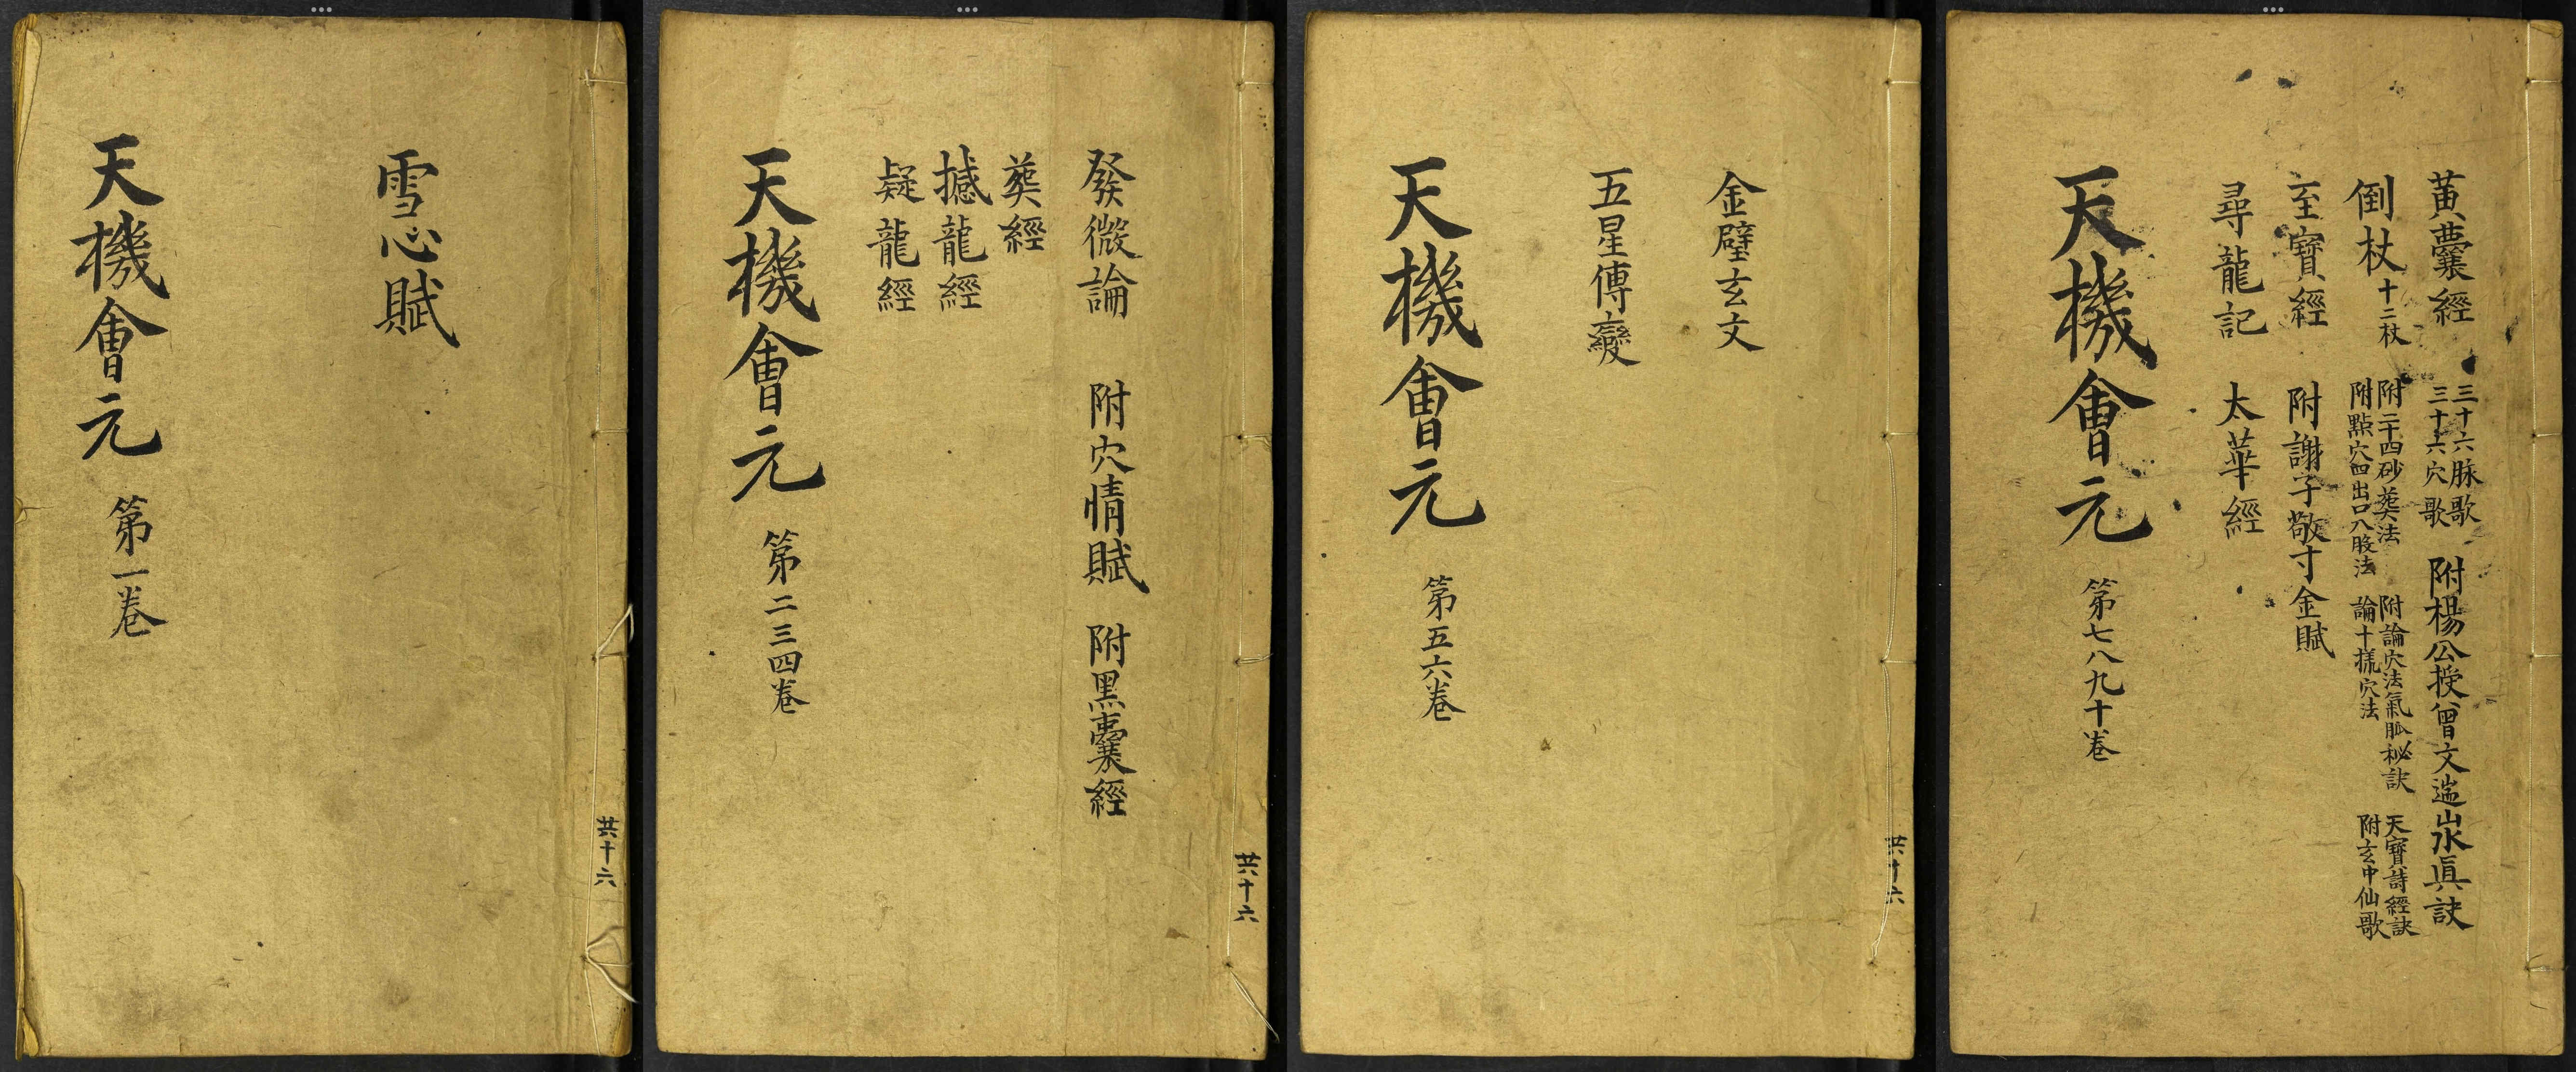 雪心賦
天機會元 第一卷
共十六
發微論 附穴情賦 附黑囊經
葬經
撼龍經
疑龍經
天機會元 第二三四卷
共十六
金璧玄文
五星傳變
天機會元 第五六卷
共十六
黃囊經 三十六脉歌 三十六穴歌 附楊公授曾文遄山水眞訣
倒杖 十二杖 附二十四砂葬法 附點穴四出口八股法 附論穴法氣脈秘訣 論十㨾穴法 天寶詩經訣 附玄中仙歌
至寶經 附謝子敬寸金賦
尋龍記 太華經
天機會元 第七八九十卷